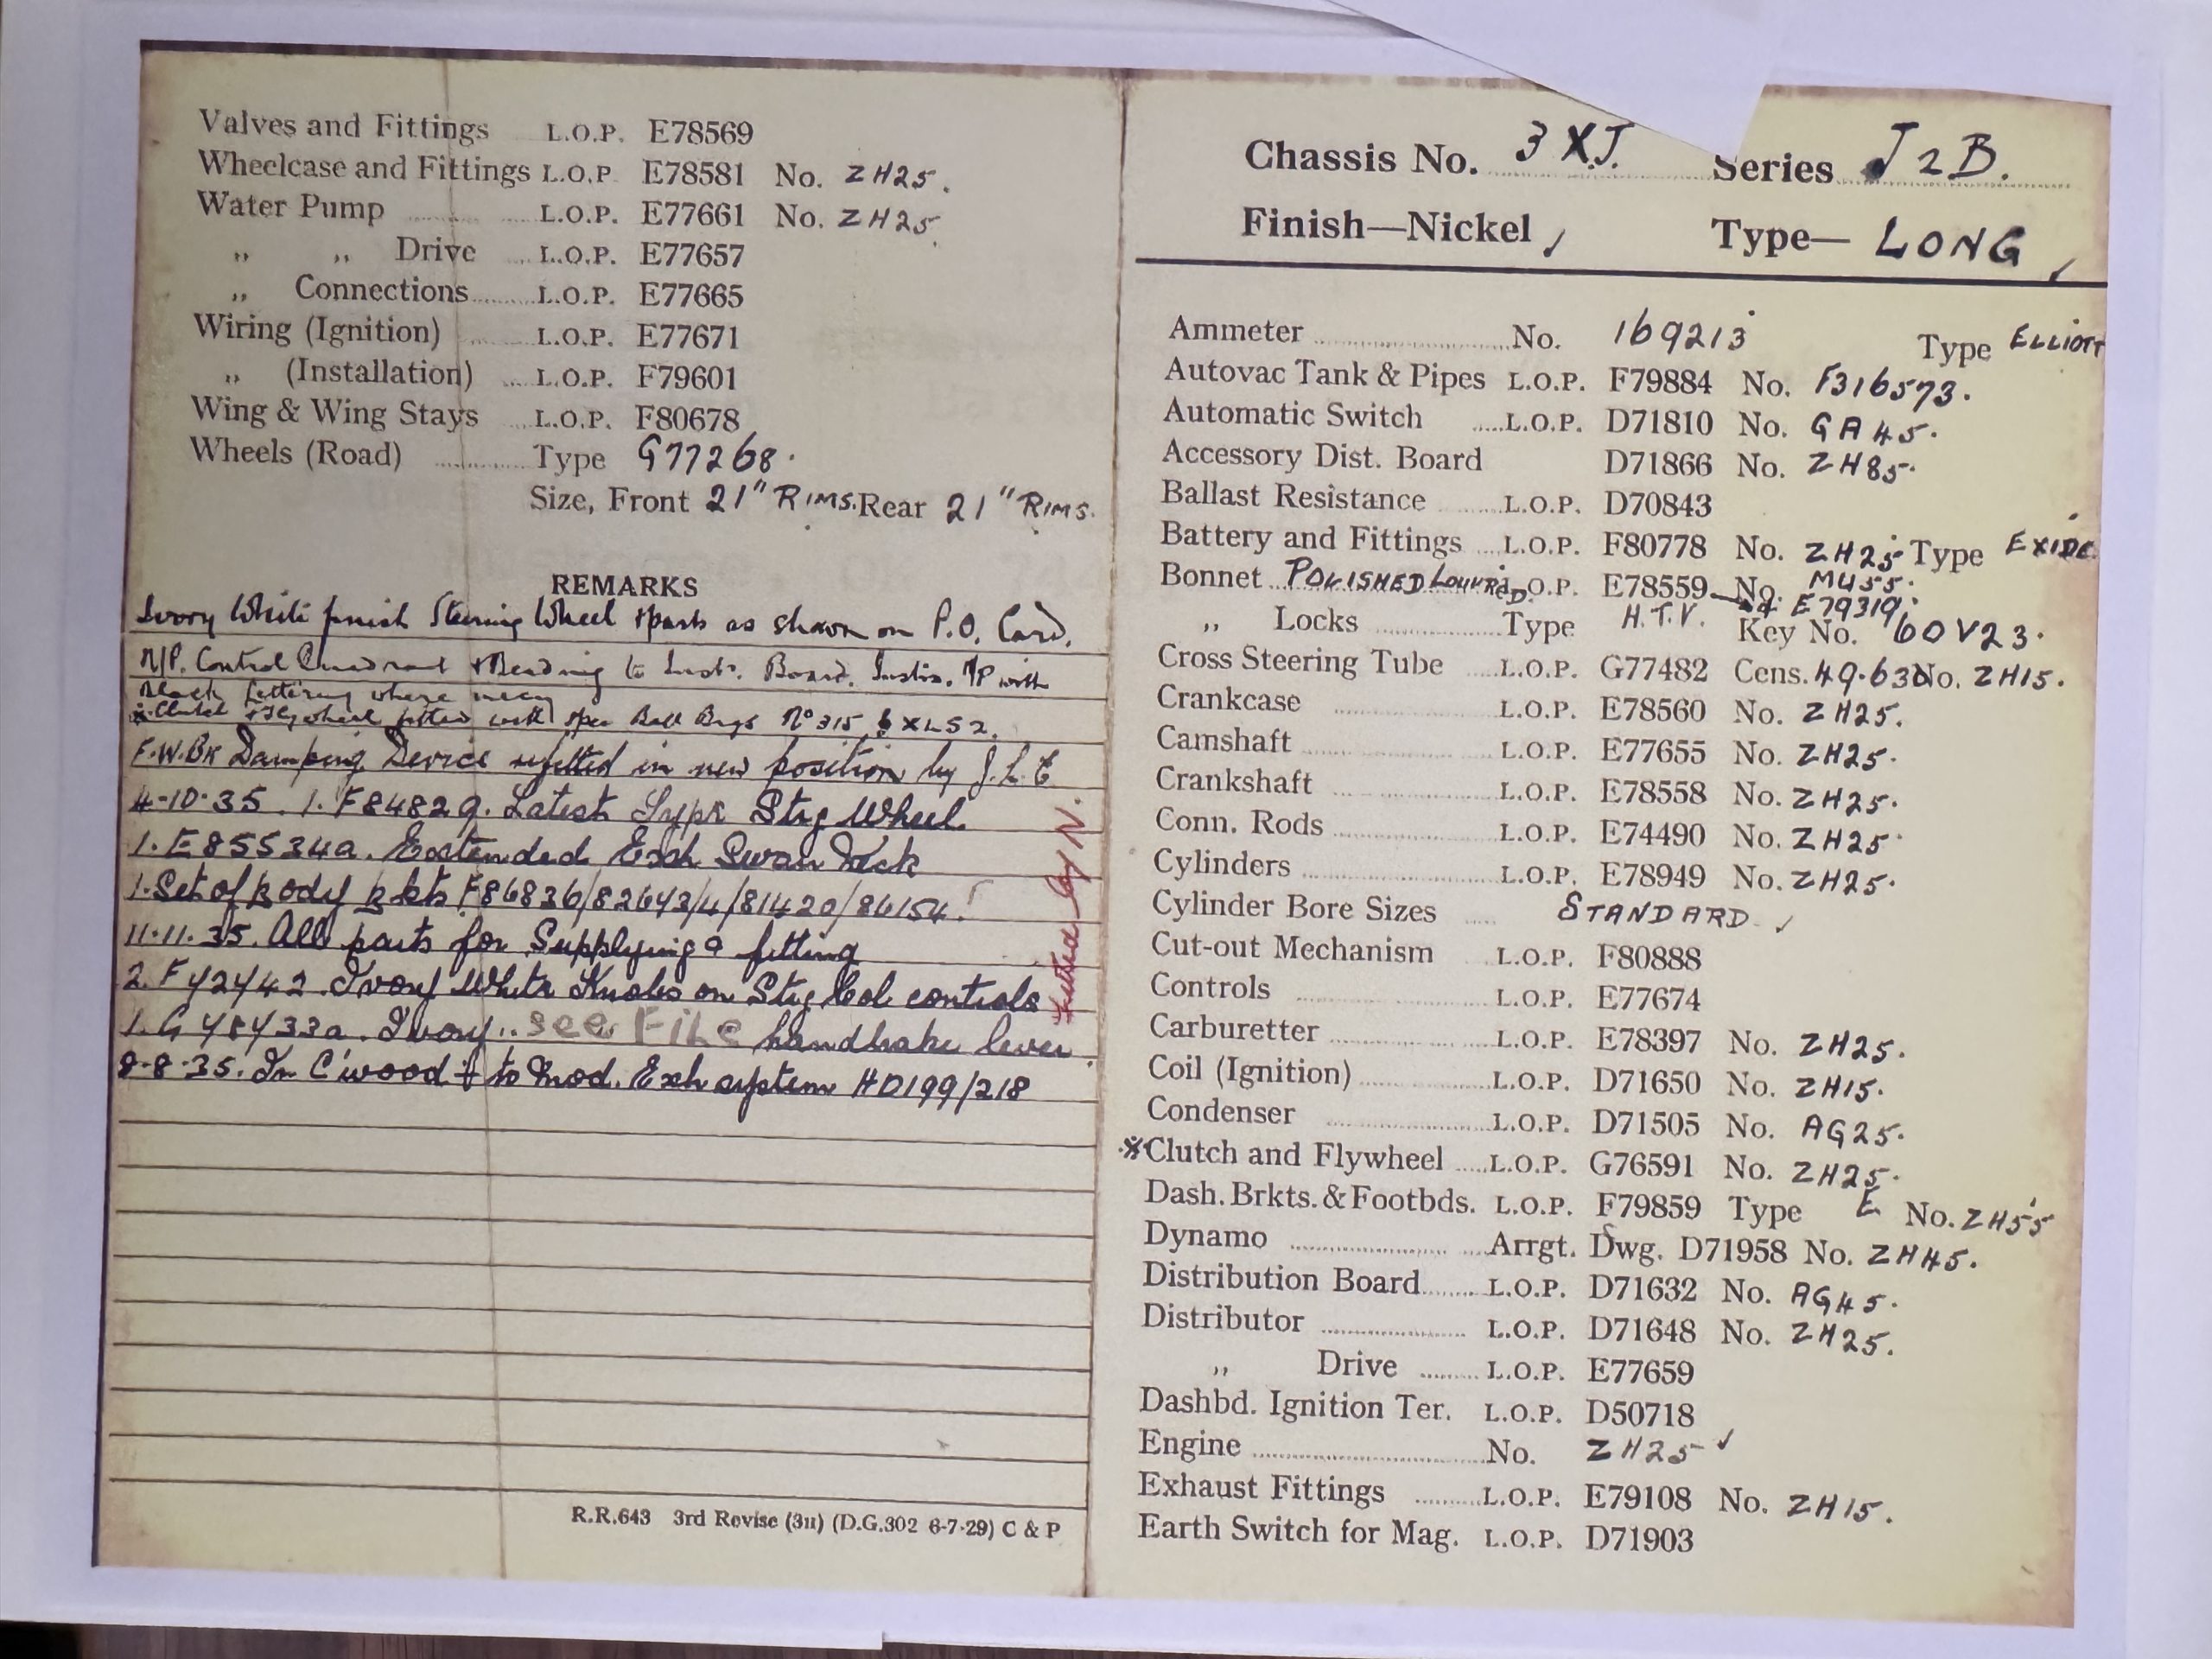 Valves and Fittings ..... L.O.P. E78569
Wheelcase and Fittings L.O.P. E78581 No. ZH25.
Water Pump ..... L.O.P. E77661 No. ZH25.
,, ,, Drive ..... L.O.P. E77657
,, Connections ..... L.O.P. E77665
Wiring (Ignition) ..... L.O.P. E77671
,, (Installation) ..... L.O.P. F79601
Wing & Wing Stays ..... L.O.P. F80678
Wheels (Road) ..... Type G77268.
Size, Front 21" RIMS. Rear 21" RIMS.
REMARKS
Ivory White finish Steering Wheel & parts as shown on P.O. Card.
N/P. Control Quadrant & Beading to Inst. Board. Instrs. N/P with
Black lettering where necy
※ Clutch & Flywheel fitted with Ball Brgs No 315 & XLS2.
F.W.BK Damping Device refitted in new position by J.L.E
4-10-35. 1. F84829. Latest Type Strg Wheel.
1. E85534a. Extended Exh Swan Neck
1. Set of body bkts F86836/82643/4/81420/86154.
11.11.35. All parts for Supplying & fitting
2. F42442. Ivory White Knobs on Strg Col controls
1. G48433a. Ivory .. see File handbrake lever.
8-8-35. In C'wood to Mod. Exh system HD199/218
Fitted by N.
R.R.643 3rd Revise (3H) (D.G.302 6-7-29) C & P
Chassis No. 3 XJ. Series J2B.
Finish—Nickel, Type— LONG,
Ammeter ..... No. 169213 Type ELLIOTT
Autovac Tank & Pipes L.O.P. F79884 No. F316573.
Automatic Switch ..... L.O.P. D71810 No. GA45.
Accessory Dist. Board D71866 No. ZH85.
Ballast Resistance ..... L.O.P. D70843
Battery and Fittings ..... L.O.P. F80778 No. ZH25 Type EXIDE
Bonnet POLISHED LOUVRED L.O.P. E78559 No. MU55.
& E79319.
,, Locks ..... Type H.T.V. Key No. 60V23.
Cross Steering Tube ..... L.O.P. G77482 Cens. 49.630 No. ZH15.
Crankcase ..... L.O.P. E78560 No. ZH25.
Camshaft ..... L.O.P. E77655 No. ZH25.
Crankshaft ..... L.O.P. E78558 No. ZH25.
Conn. Rods ..... L.O.P. E74490 No. ZH25.
Cylinders ..... L.O.P. E78949 No. ZH25.
Cylinder Bore Sizes ..... STANDARD
Cut-out Mechanism L.O.P. F80888
Controls ..... L.O.P. E77674
Carburetter ..... L.O.P. E78397 No. ZH25.
Coil (Ignition) ..... L.O.P. D71650 No. ZH15.
Condenser ..... L.O.P. D71505 No. AG25.
※Clutch and Flywheel ..... L.O.P. G76591 No. ZH25.
Dash. Brkts. & Footbds. L.O.P. F79859 Type E No. ZH55
Dynamo ..... Arrgt. Dwg. D71958 No. ZH45.
Distribution Board ..... L.O.P. D71632 No. AG45.
Distributor ..... L.O.P. D71648 No. ZH25.
,, Drive ..... L.O.P. E77659
Dashbd. Ignition Ter. L.O.P. D50718
Engine ..... No. ZH25 ✓
Exhaust Fittings ..... L.O.P. E79108 No. ZH15.
Earth Switch for Mag. L.O.P. D71903